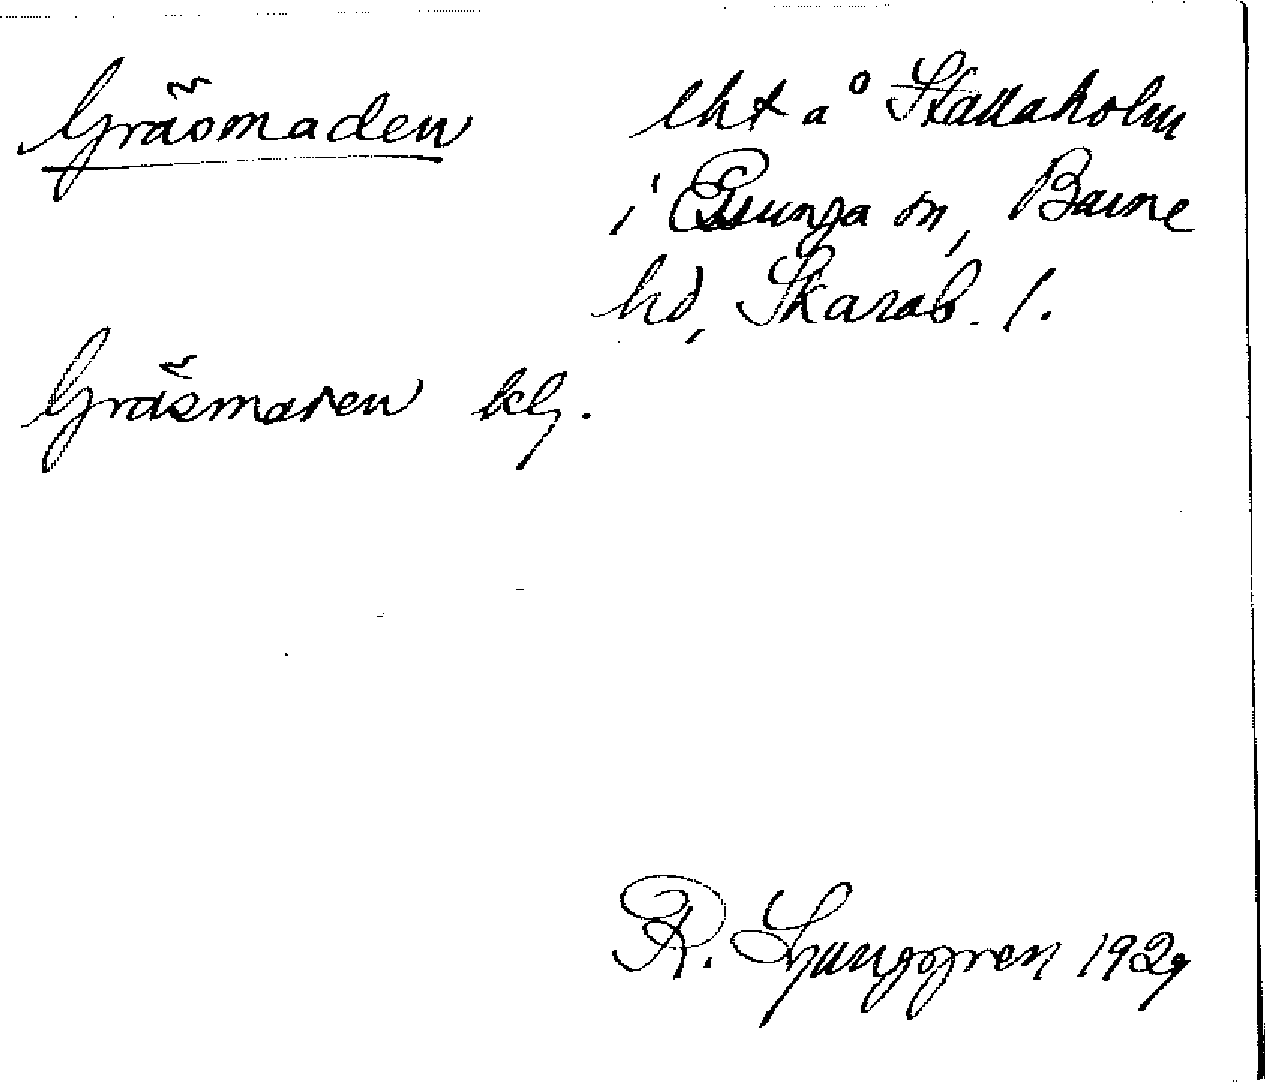 Gräsmaden
cht å Stallaholm
i Essunga sn, Barne
hd, Skarab. l.
Gräsmaren klg.
R. Ljunggren 1929